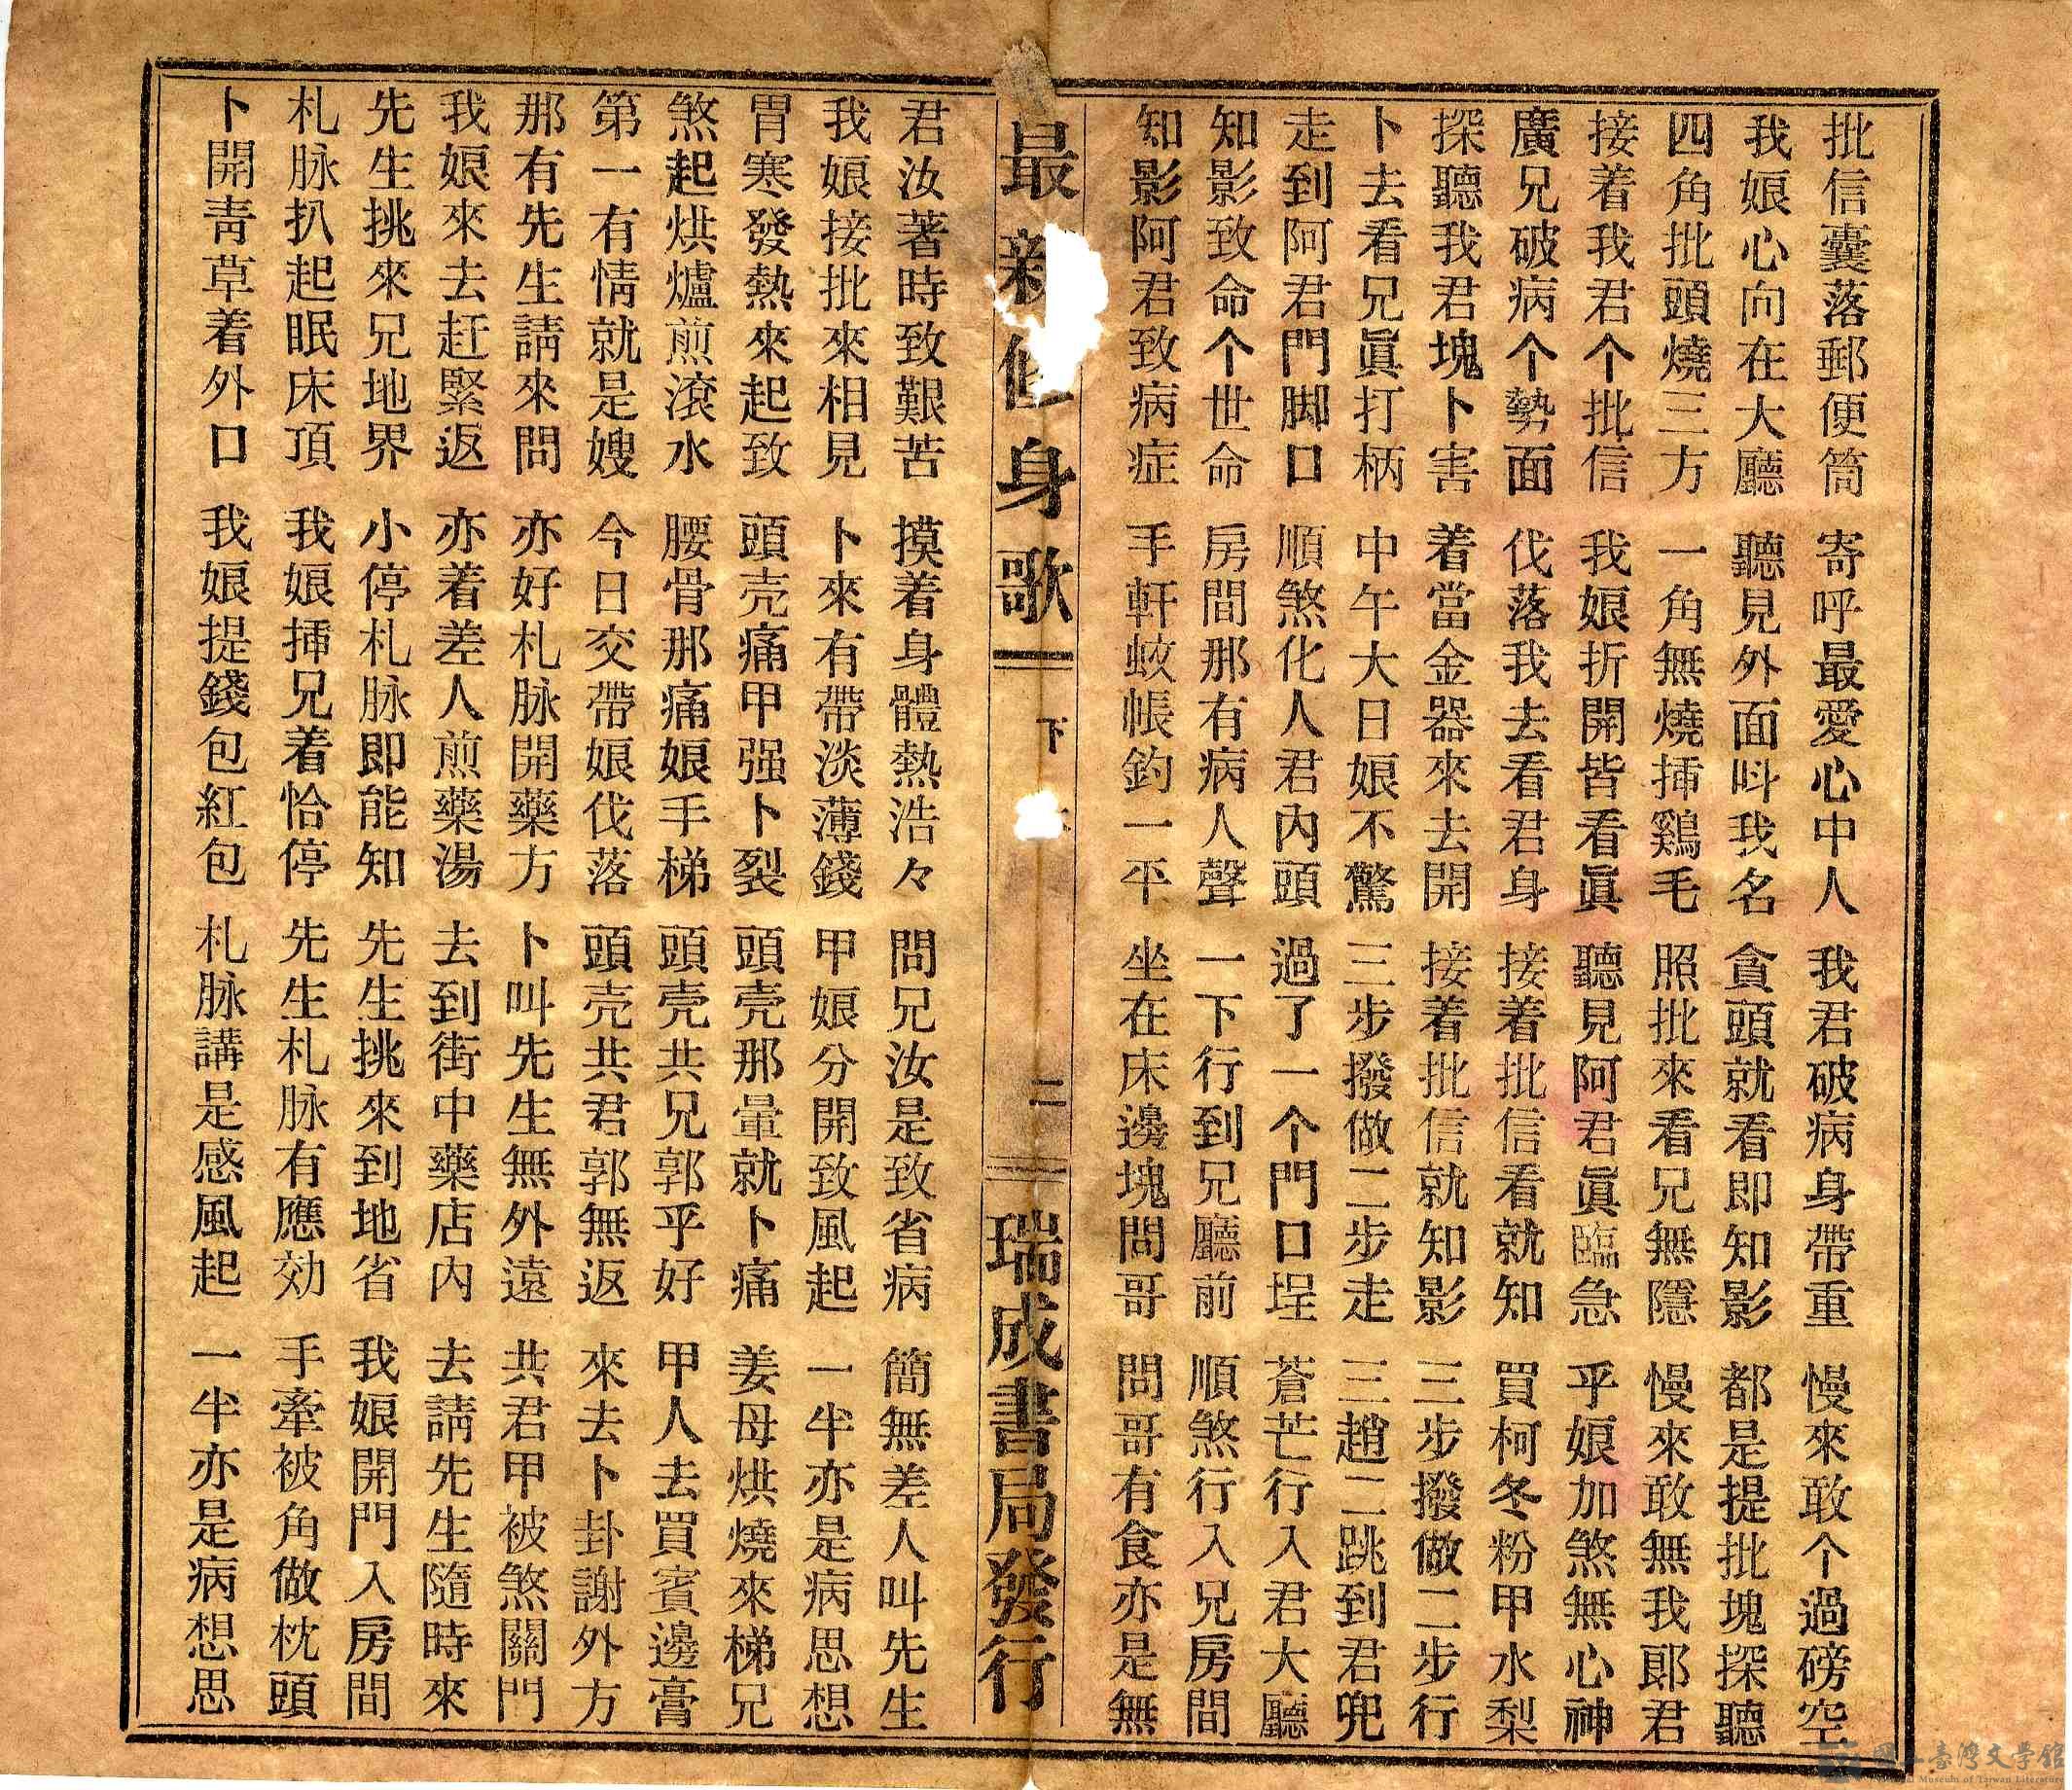 批信囊落郵便筒 寄呼最愛心中人 我君破病身帶重 慢來敢个過磅空
我娘心向在大廳 聽見外面呌我名 貪頭就看即知影 都是提批塊探聽
四角批頭燒三方 一角無燒揷鷄毛 照批來看兄無隱 慢來敢無我郎君
接着我君个批信 我娘折開皆看眞 聽見阿君眞臨急 乎娘加煞無心神
廣兄破病个勢面 伐落我去看君身 接着批信看就知 買柯冬粉甲水梨
探聽我君塊卜害 着當金器來去開 接着批信就知影 三步撥做二步行
卜去看兄眞打柄 中午大日娘不驚 三步撥做二步走 三趙二跳到君兜
走到阿君門脚口 順煞化人君內頭 過了一个門口埕 蒼芒行入君大廳
知影致命个世命 房間那有病人聲 一下行到兄廳前 順煞行入兄房間
知影阿君致病症 手軒蚊帳鈞一平 坐在床邊塊問哥 問哥有食亦是無
最 修身歌 下 二 瑞成書局發行
君汝著時致艱苦 摸着身體熱浩々 問兄汝是致省病 簡無差人叫先生
我娘接批來相見 卜來有帶淡薄錢 甲娘分開致風起 一半亦是病思想
胃寒發熱來起致 頭壳痛甲强卜裂 頭壳那暈就卜痛 姜母烘燒來梯兄
煞起烘爐煎滾水 腰骨那痛娘手梯 頭壳共兄郭乎好 甲人去買賓邊膏
第一有情就是嫂 今日交帶娘伐落 頭壳共君郭無返 來去卜卦謝外方
那有先生請來問 亦好札脉開藥方 卜叫先生無外遠 共君甲被煞關門
我娘來去赶緊返 亦着差人煎藥湯 去到街中藥店內 去請先生隨時來
先生挑來兄地界 小停札脉即能知 先生挑來到地省 我娘開門入房間
札脉扒起眠床頂 我娘揷兄着恰停 先生札脉有應効 手牽被角做枕頭
卜開靑草着外口 我娘提錢包紅包 札脉講是感風起 一半亦是病想思